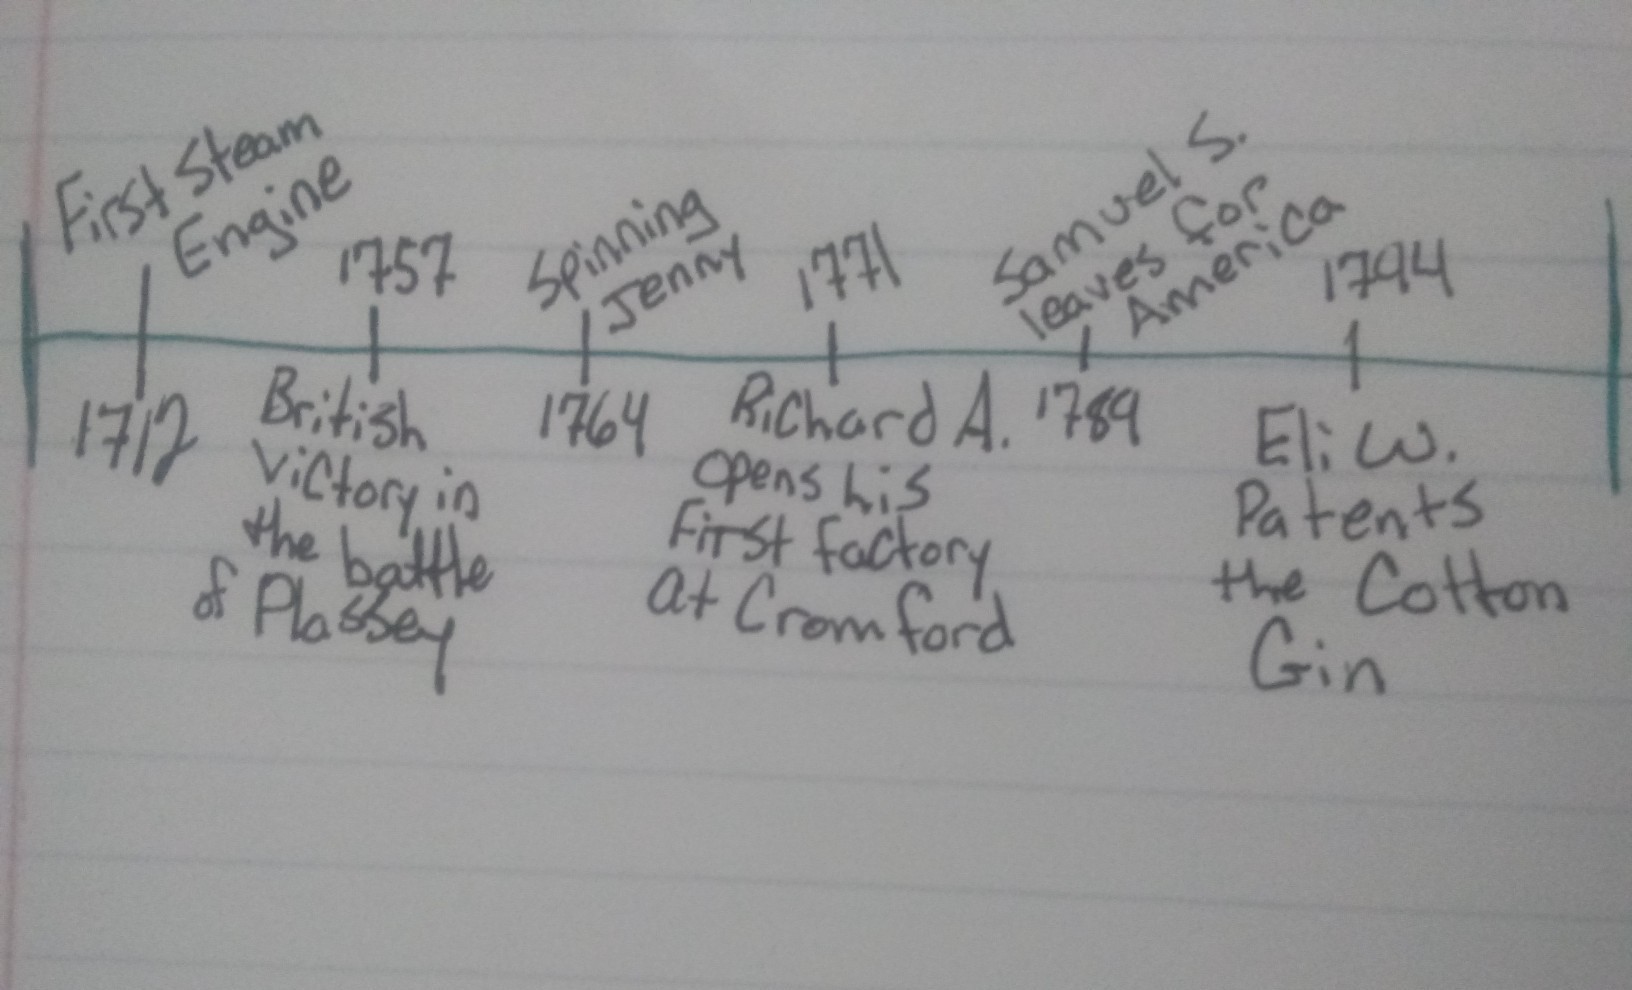 First Steam
Engine
1712
1757
British
Victory in
the battle
of Plassey
Spinning
Jenny
1764
1771
Richard A.
opens his
First factory
at Cromford
Samuel S.
leaves for
America
1789
1794
Eli W.
Patents
the Cotton
Gin